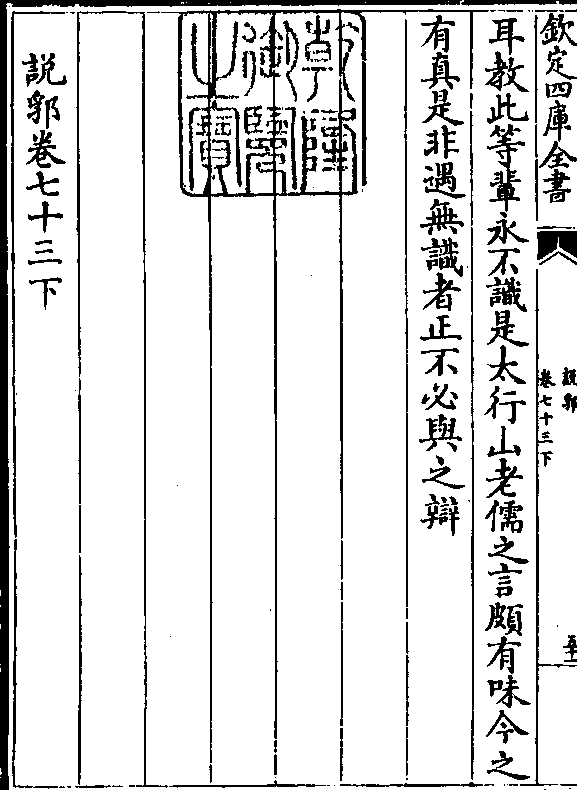 欽定四庫全書
說郛
卷七十三下
耳教此等輩永不識是太行山老儒之言頗有味今之
有真是非遇無識者正不必與之辯
乾隆御覽之寶
說郛卷七十三下